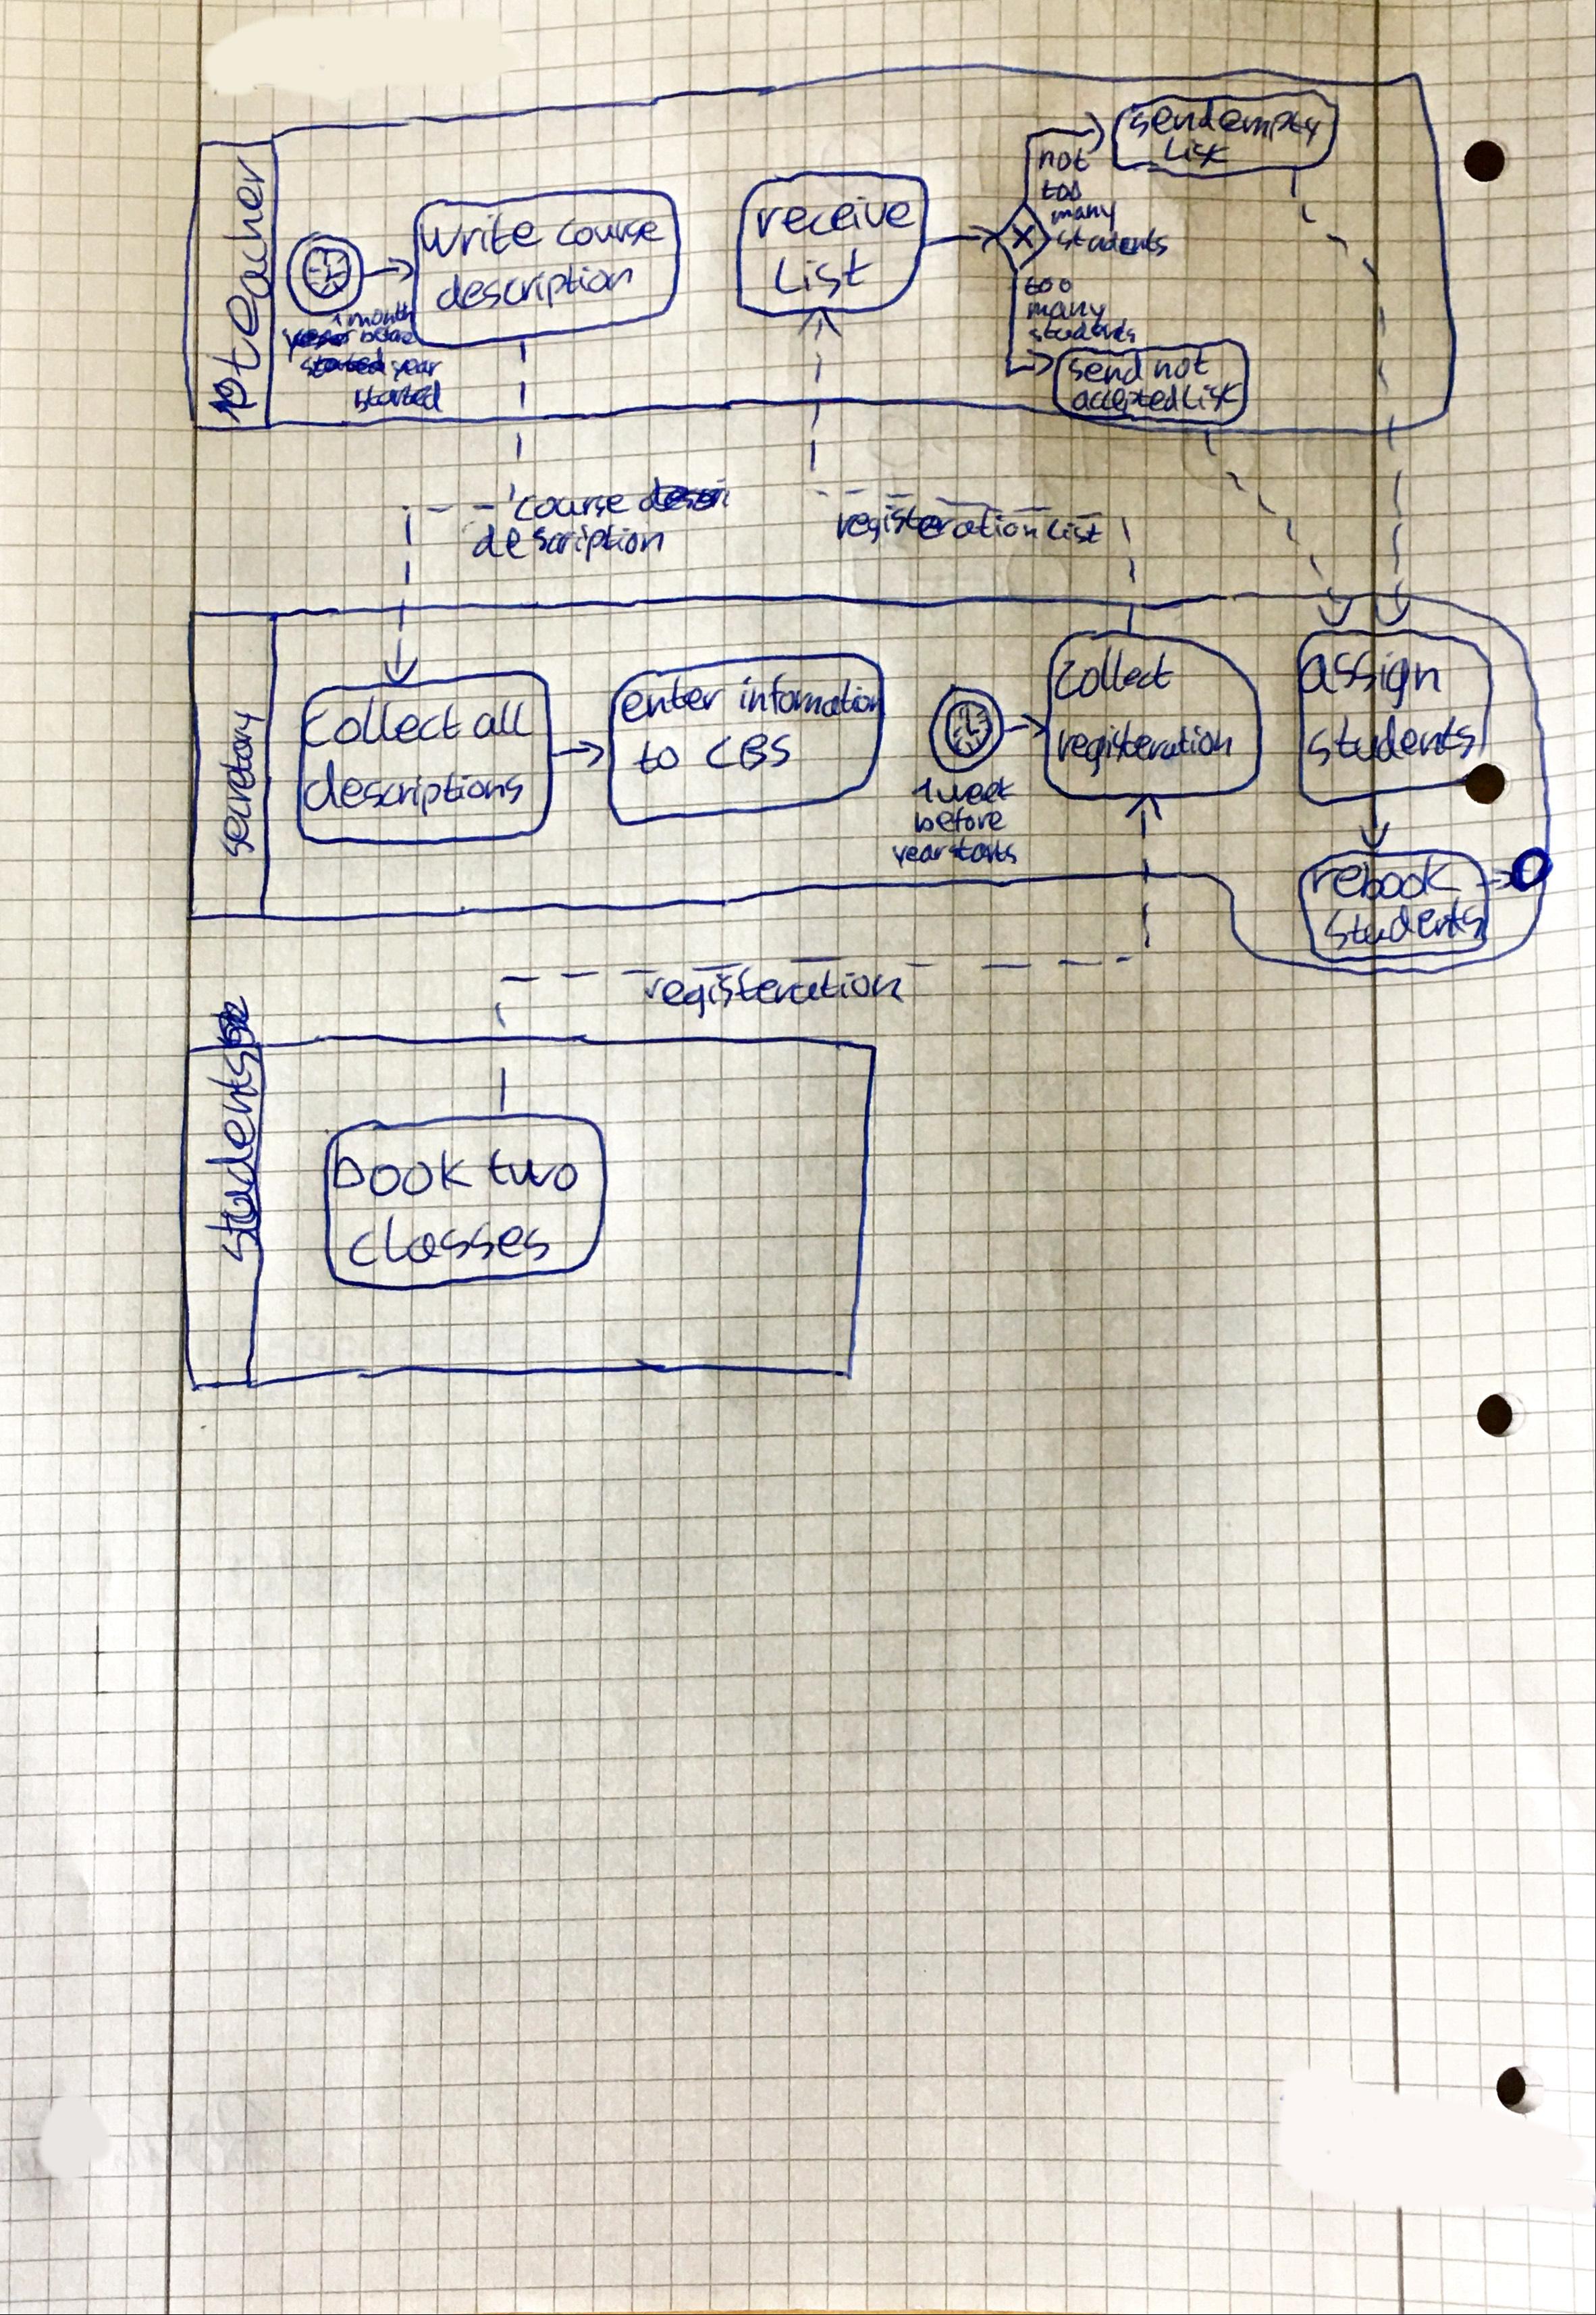 teacher
Write course
description
1 month
before
year
started
receive
List
not
too
many
students
too
many
students
send empty
List
send not
accepted List
course
description
registeration List
secretary
Collect all
descriptions
enter infomation
to CBS
1 week
before
year starts
collect
registeration
assign
students
rebook
students
registeration
students
book two
classes